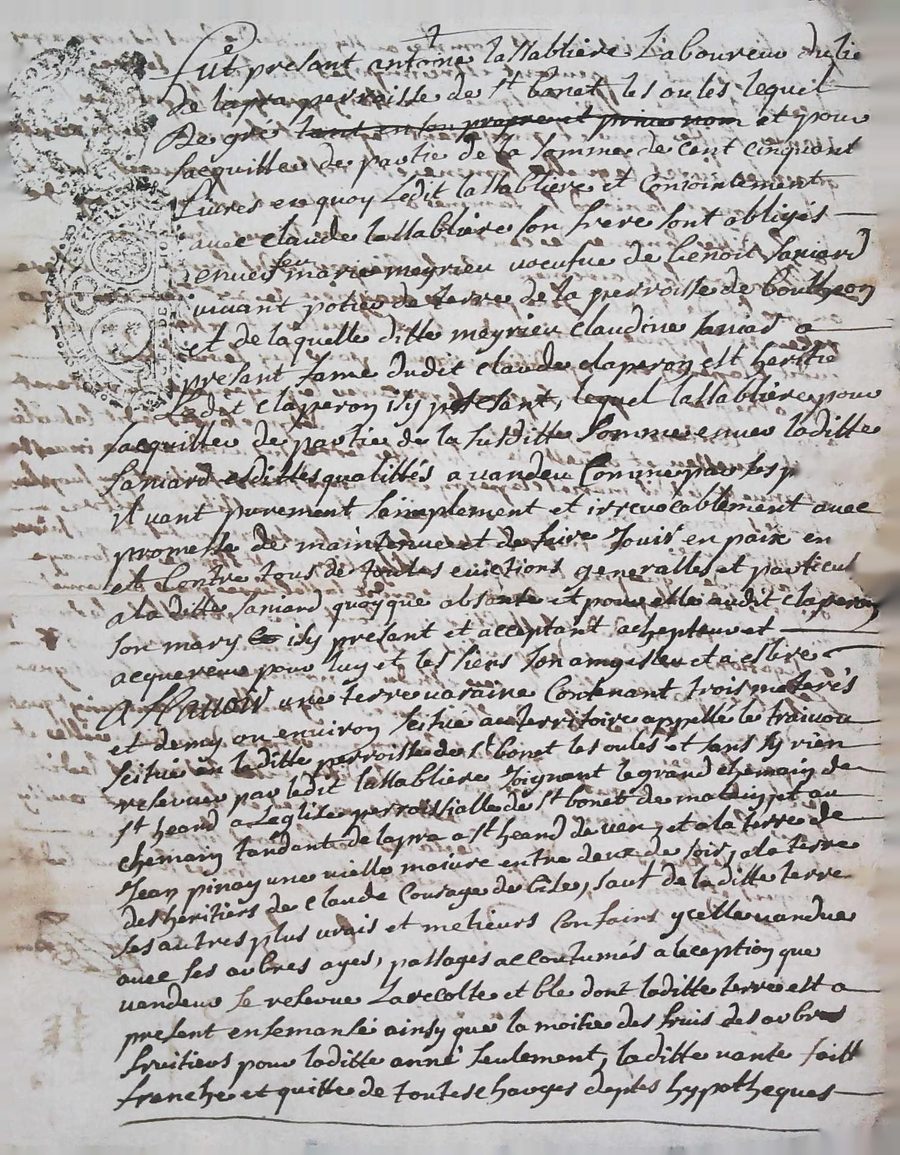 Fut présant antoine lassabliere Laboureur du lie
de lapra perroisse de st bonet les oules lequel
De gré tant en son propre et prive nom et pour
sacquitter de partie de la somme de cent cinquant
Livres en quoy Ledit lassabliere et Conointement
avec claude lassabliere son frere sont obligés
enuers feu marie meyrieu voeufue de benoit Janiard
vivant potier de terre de la perroisse de bouthyeon
et de laquelle ditte meyrieu claudine Janiar a
présant fame dudit claude claperon est heritie
Ledit claperon isy présant, lequel lassabliere pour
sacquitter de partie de la susditte somme enuer laditte
Janiard esdittes qualittés a vandeu Comme par les p
il vant purement simplement et irrevocablement avec
promesse de maintenue et de faire Jouir en paix en
et Contre tous de toutes evictions generalles et particul
a laditte Janiard quoyque absante et pour elle audit claperon
son mary isy présant et acceptant achepteur et
acquereur pour luy et les siens son amy esleu et a eslire
A Sçauoir une terre varaine Contenant trois meterés
et demy ou environ scitue au territoire appellé le traivou
scitué en laditte perroisse de st bonet les oules et sans sy rien
reserver par ledit lassabliere Joignant le grand chemain de
st heand a Leglise perroissialle de st bonet de matain, et au
chemain tandant de lapra a st heand de ven, et a la terre de
Jean pinay une vielle masure entre deux de soir, a la terre
des heritiers de claude Courage de bise, sauf de laditte terre
ses autres plus vrais et melieurs Confains ycelle vandue
avec ses arbres ayes, passages accoutumés a leception que
vandeur se reserve La recolte et ble dont laditte terre est a
présent ensemansé ainsy que la moitié des fruis des arbres
fruitiers pour laditte anné seulement, laditte vante faitt
franche et quitte de toutes charges deptes hypotheques